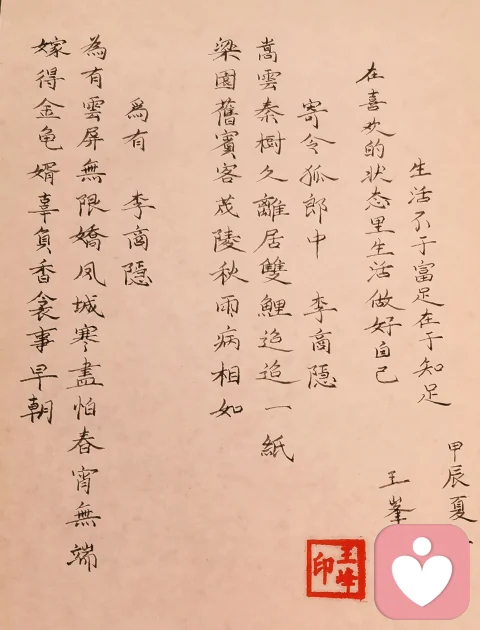 生活不于富足在于知足
在喜欢的状态里生活做好自己
甲辰夏
王峯
寄令狐郎中 李商隱
嵩雲秦樹久離居雙鯉迢迢一紙
梁園舊賓客茂陵秋雨病相如
爲有 李商隱
為有雲屏無限嬌凤城寒盡怕春宵無端
嫁得金龟婿辜負香衾事早朝
王峰印